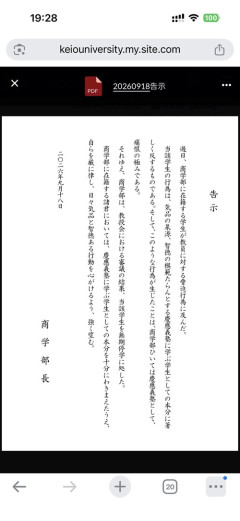 19:28
100
keiouniversity.my.site.com
PDF
20260918告示
告示
過日、商学部に在籍する学生が教員に対する脅迫行為に及んだ。
当該学生の行為は、気品の泉源、智徳の模範たらんとする慶應義塾に学ぶ学生としての本分に著
しく反するものである。そして、このような行為が生じたことは、商学部ひいては慶應義塾として、
痛恨の極みである。
それゆえ、商学部は、教授会における審議の結果、当該学生を無期停学に処した。
商学部に在籍する諸君においては、慶應義塾に学ぶ学生としての本分を十分にわきまえたうえ、
自らを厳に律し、日々気品と智徳ある行動を心がけるよう、強く望む。
二〇二六年九月十八日
商学部長
20